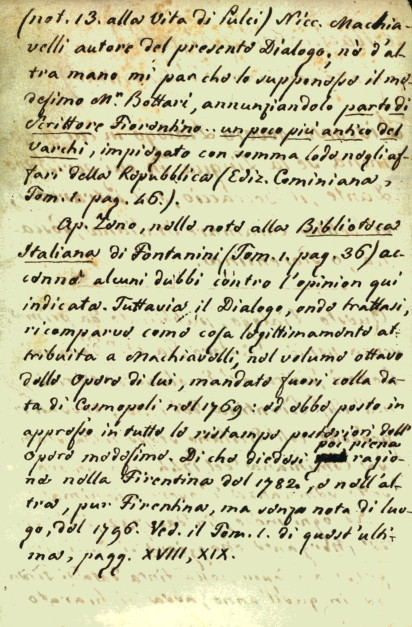 (not. 13. alla Vita di Pulci) Nicc. Machia-
velli autore del presente Dialogo, nè d'al-
tra mano mi par che lo supponesse il me-
desimo M.r Bottari, annunziandolo parto di
Scrittore Fiorentino .. un poco più antico del
Varchi, impiegato con somma lode negli af-
fari della Repubblica (Ediz. Cominiana,
Tom. 1. pag. 46.).
Ap. Zeno, nelle note alla Biblioteca
Italiana di Fontanini (Tom. 1. pag. 36) ac-
cennò alcuni dubbi contro l'opinion qui
indicata. Tuttavia il Dialogo, onde trattasi,
ricomparve come cosa legittimamente at-
tribuita a Machiavelli, nel volume ottavo
delle Opere di lui, mandate fuori colla da-
ta di Cosmopoli nel 1769: ed ebbe posto in
appresso in tutte le ristampe posteriori dell'
Opere medesime. Di che diedesi poi piena ragio-
ne nella Fiorentina del 1782, e nell'al-
tra, pur Fiorentina, ma senza nota di luo-
go, del 1796. Ved. il Tom. 1. di quest'ulti-
ma, pagg. XVIII, XIX.